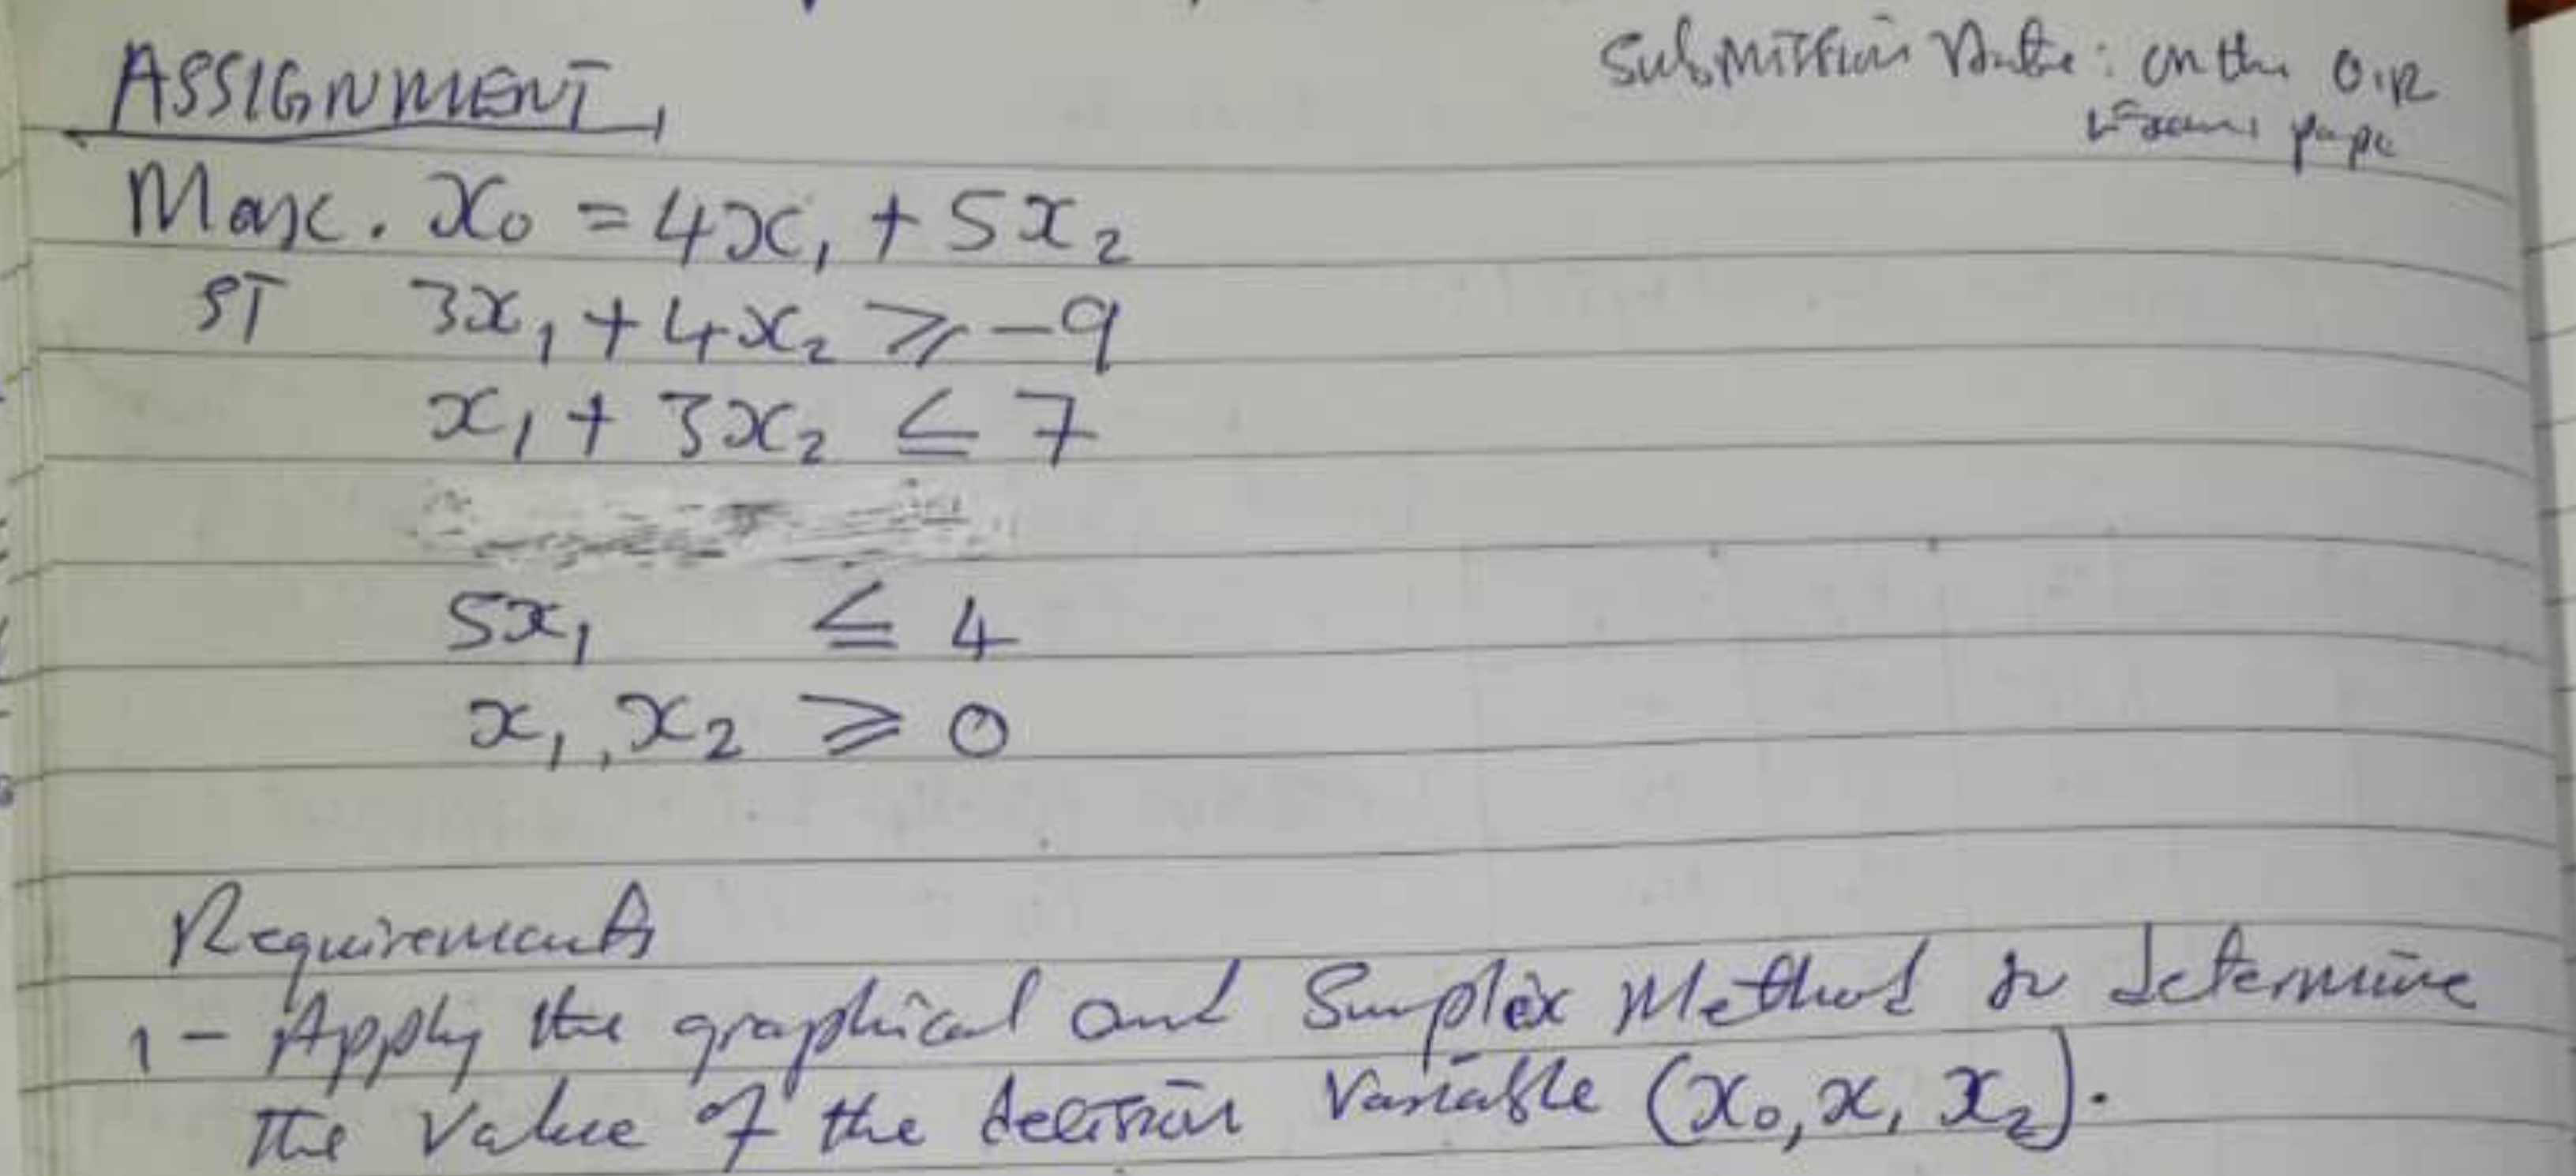 ASSIGNMENT,
Submission Date: on the O.R
Exams pape
Max. x₀ = 4x₁ + 5x₂
ST 3x₁ + 4x₂ ⩾ -9
x₁ + 3x₂ ≤ 7
5x₁ ≤ 4
x₁, x₂ ⩾ 0
Requirements
1 - Apply the graphical and Simplex Method to determine
the value of the decision variable (x₀, x₁ x₂).